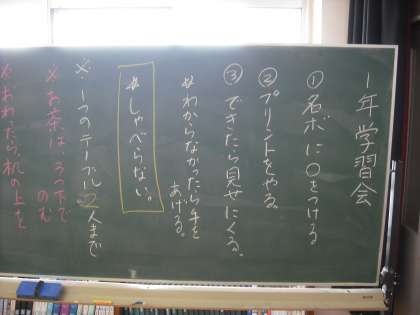 1年学習会
①名ボに○をつける
②プリントをやる。
③できたら見せにくる。
*わからなかったら手を
あげる。
*しゃべらない。
※1つのテーブル2人まで
※お茶はろう下で
のむ
※おわったら机の上を